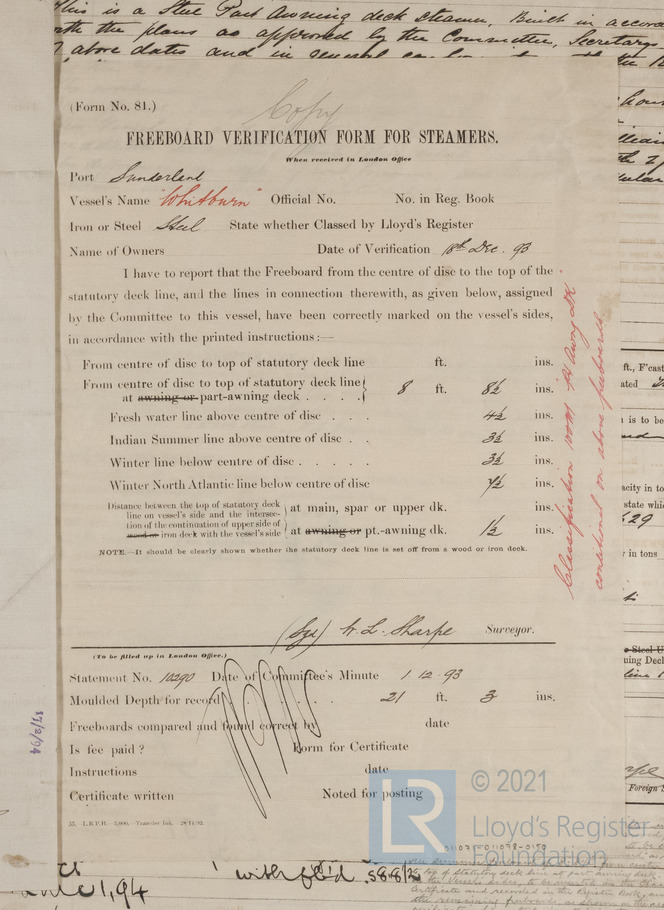 This is a Steel Part Awning deck Steamer, Built in accord
with the plans as approved by the Committee, Secretarys
above dates and in general
Copy
(Form No. 81.)
FREEBOARD VERIFICATION FORM FOR STEAMERS.
When received in London Office
Port Sunderland
Vessel's Name "Whitburn" Official No. No. in Reg. Book
Iron or Steel Steel State whether Classed by Lloyd's Register
Name of Owners Date of Verification 18th Dec. 93
I have to report that the Freeboard from the centre of disc to the top of the
statutory deck line, and the lines in connection therewith, as given below, assigned
by the Committee to this vessel, have been correctly marked on the vessel's sides,
in accordance with the printed instructions:—
From centre of disc to top of statutory deck line ft. ins.
From centre of disc to top of statutory deck line
at awning or part-awning deck . . . . 8 ft. 8½ ins.
Fresh water line above centre of disc . . . 4½ ins.
Indian Summer line above centre of disc . . 3½ ins.
Winter line below centre of disc . . . . . 3½ ins.
Winter North Atlantic line below centre of disc 7½ ins.
Distance between the top of statutory deck
line on vessel's side and the intersec-
tion of the continuation of upper side of
wood or iron deck with the vessel's side
at main, spar or upper dk. ins.
at awning or pt.-awning dk. 1½ ins.
NOTE.—It should be clearly shown whether the statutory deck line is set off from a wood or iron deck.
Classification 100A1 Pt Awng Dk
conditional on above freeboards
(Sgd) W. L. Sharpe Surveyor.
(To be filled up in London Office.)
Statement No. 10290 Date of Committee's Minute 1 12 93
Moulded Depth for record . . . . 21 ft. 3 ins.
Freeboards compared and found correct by date
Is fee paid ? Form for Certificate
Instructions date
Certificate written Noted for posting
55.—L.R.P.H.—5,000.—Transfer Ink. 28/11/92.
17/2/94
LR © 2021
Lloyd's Register
Foundation
011073-011078-0150
1,94
ft., F'cast
ated
is to be
acity in to
state whic
629
in tons
Steel U
ning Deck
Foreign S